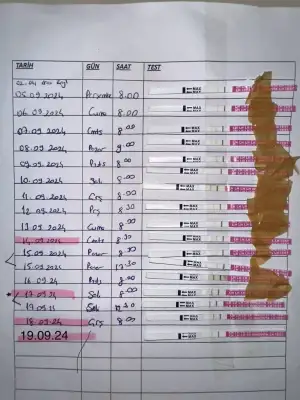 TARİH GÜN SAAT TEST
05.09.2024 Perşembe 8.00
06.09.2024 Cuma 8.00
07.09.2024 Cmts 8.00
08.09.2024 Pazar 9.00
09.09.2024 Pzts 8.00
10.09.2024 Salı 8.00
11.09.2024 Crş 8.00
12.09.2024 Prş 8.30
13.09.2024 Cuma 8.00
14.09.2024 Cmts 8.30
15.09.2024 Pazar 8.00
15.09.2024 Pazar 17.30
16.09.24 Pzts 8.00
17.09.24 Salı 8.00
17.09.24 Salı
18.09.24 Crş 8.00
19.09.24